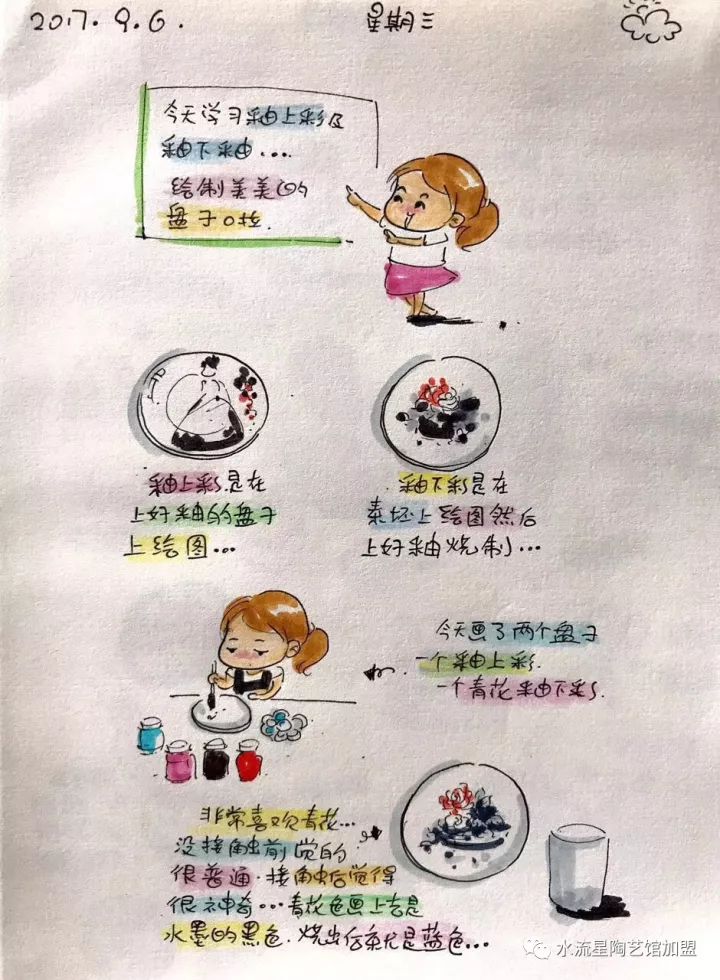 2017.9.6.
星期三
今天学习釉上彩及
釉下釉....
绘制美美的
盘子口拉.
釉上彩是在
上好釉的的盘子
上绘图...
釉下彩是在
素坯上绘图然后
上好釉烧制...
今天画了两个盘子
一个釉上彩.
一个青花釉下彩.
非常喜欢青花...
没接触前觉的
很普通.接触后觉得
很神奇...青花色画上去是
水墨的黑色.烧出后就是蓝色...
水流星陶艺馆加盟